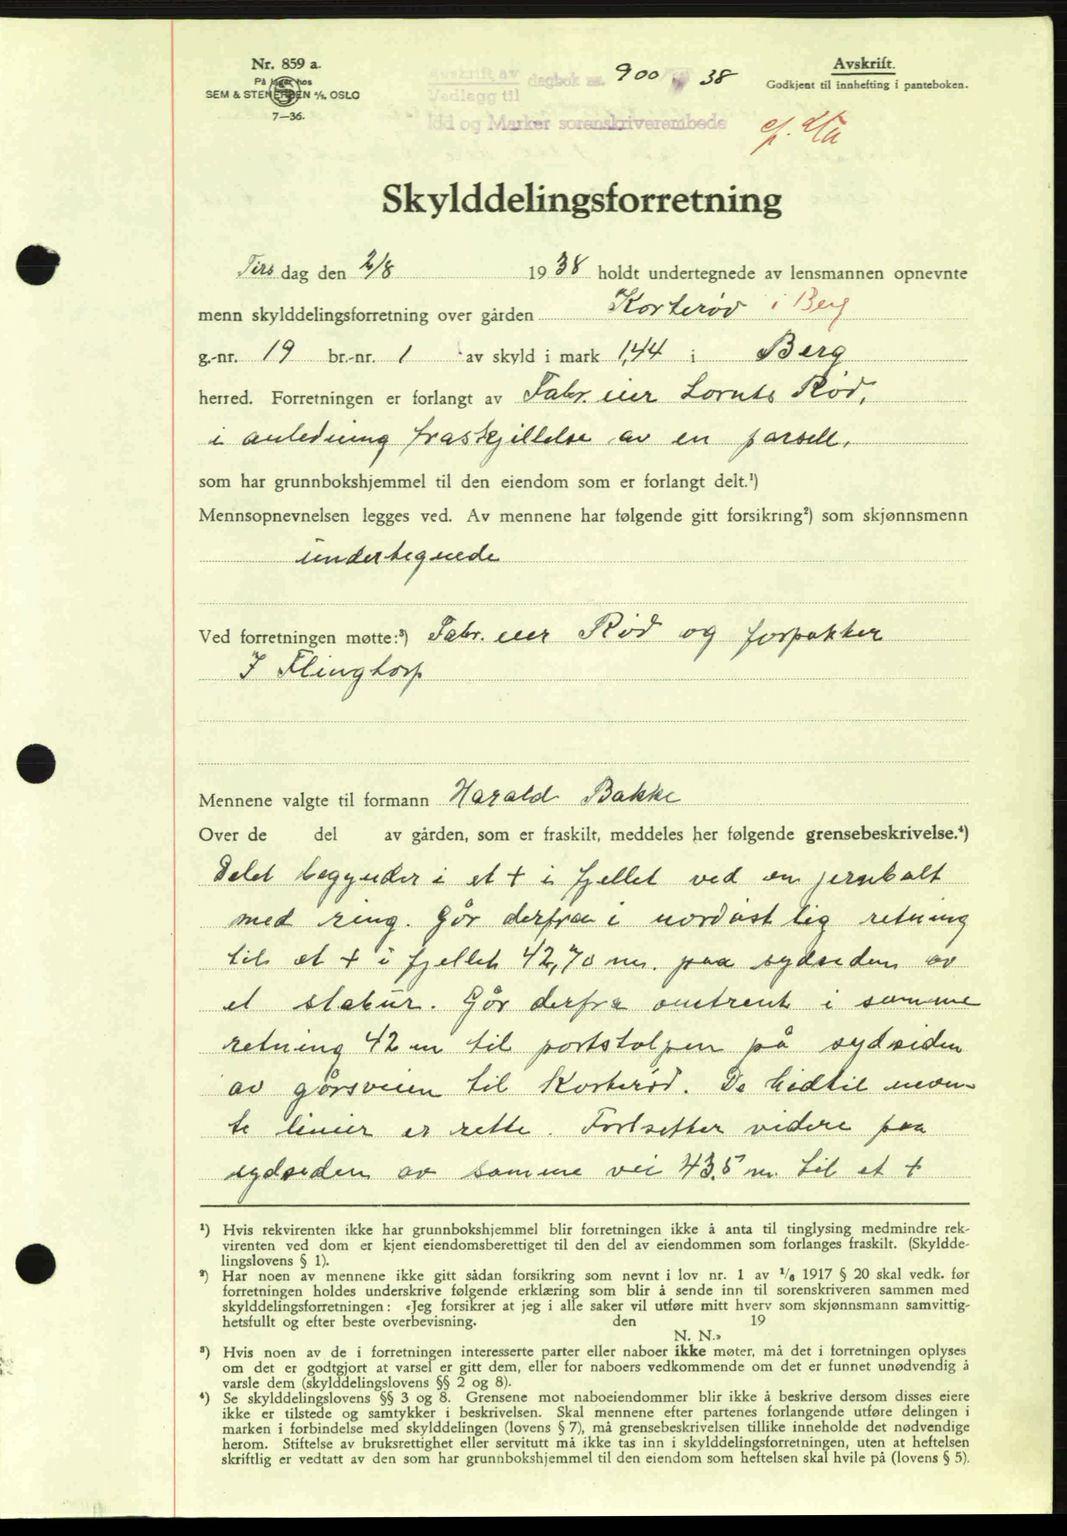 Nr. 859 a.
På lager hos
SEM & STENERSEN A/S, OSLO
7—36.
Avskrift av
Vedlegg til
dagbok nr. 900 38
Idd og Marker sorenskriverembede
Avskrift.
Godkjent til innhefting i panteboken.
Skylddelingsforretning
Tirs dag den 2/8 1938 holdt undertegnede av lensmannen opnevnte
menn skylddelingsforretning over gården Korterød i Berg
g.-nr. 19 br.-nr. 1 av skyld i mark 1,44 i Berg
herred. Forretningen er forlangt av Fabr. eier Lornts Rød,
i anledning fraskjillelse av en parsell,
som har grunnbokshjemmel til den eiendom som er forlangt delt.¹)
Mennsopnevnelsen legges ved. Av mennene har følgende gitt forsikring²) som skjønnsmenn
undertegnede
Ved forretningen møtte:³) Fabr. eier Rød og forpakter
I Flingtorp
Mennene valgte til formann Harald Bakke
Over de del av gården, som er fraskilt, meddeles her følgende grensebeskrivelse.⁴)
Delet begynder i et + i fjellet ved en jernbolt
med ring. Går derfra i nordøstlig retning
til et + i fjellet 42,70 m. paa sydsiden av
et stabur. Går derfra omtrent i samme
retning 42 m til portstolpen på sydsiden
av gårsveien til Korterød. De hidtil nevn-
te linier er rette. Fortsetter videre paa
sydsiden av samme vei 43,5 m. til et +
¹) Hvis rekvirenten ikke har grunnbokshjemmel blir forretningen ikke å anta til tinglysing medmindre rek-
virenten ved dom er kjent eiendomsberettiget til den del av eiendommen som forlanges fraskilt. (Skyldde-
lingslovens § 1).
²) Har noen av mennene ikke gitt sådan forsikring som nevnt i lov nr. 1 av 1/6 1917 § 20 skal vedk. før
forretningen holdes underskrive følgende erklæring som blir å sende inn til sorenskriveren sammen med
skylddelingsforretningen: «Jeg forsikrer at jeg i alle saker vil utføre mitt hverv som skjønnsmann samvittig-
hetsfullt og efter beste overbevisning. den 19
N. N.»
³) Hvis noen av de i forretningen interesserte parter eller naboer ikke møter, må det i forretningen oplyses
om det er godtgjort at varsel er gitt dem, eller for naboers vedkommende om det er funnet unødvendig å
varsle dem (skylddelingslovens §§ 2 og 8).
⁴) Se skylddelingslovens §§ 3 og 8. Grensene mot naboeiendommer blir ikke å beskrive dersom disses eiere
ikke er tilstede og samtykker i beskrivelsen. Skal mennene efter partenes forlangende utføre delingen i
marken i forbindelse med skylddelingen (lovens § 7), må grensebeskrivelsen tillike inneholde det nødvendige
herom. Stiftelse av bruksrettighet eller servitutt må ikke tas inn i skylddelingsforretningen, uten at heftelsen
skriftlig er vedtatt av den som har grunnbokshjemmel til den eiendom som heftelsen skal hvile på (lovens § 5).